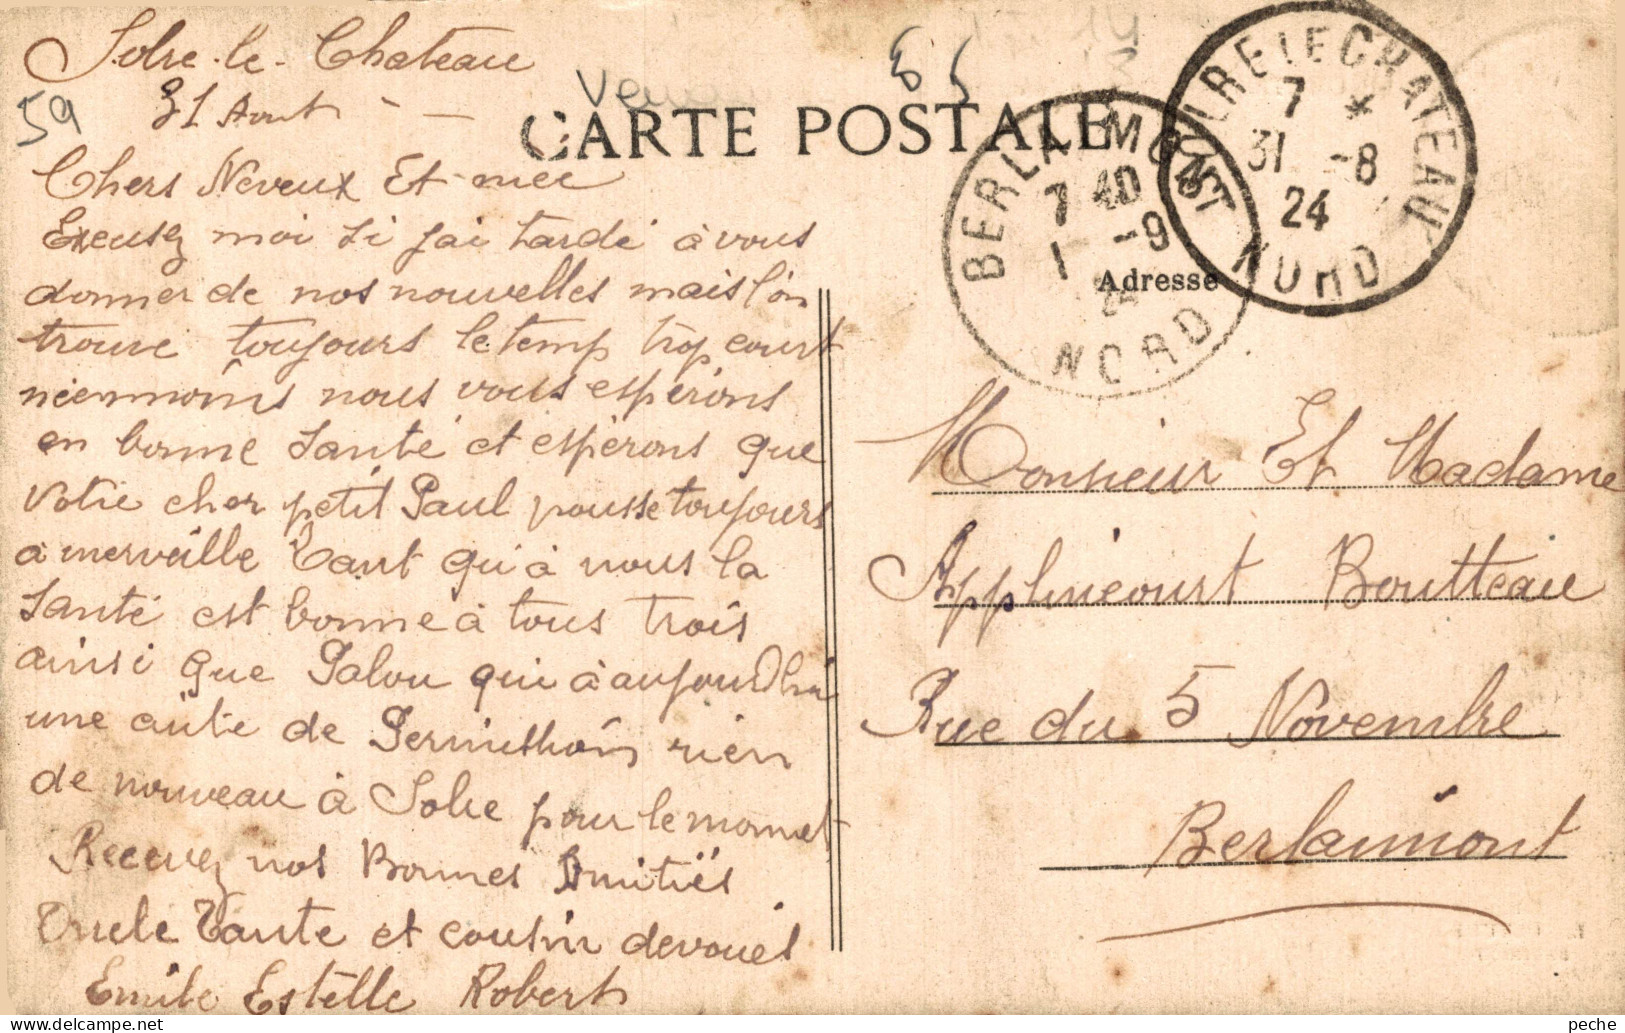 Solre-le-Chateau
59
31 Aout
CARTE POSTALE
SOLRE LE CHATEAU
7 *
31 -8
24
NORD
BERLAIMONT
7 40
1 -9
NORD
Adresse
Chers Neveux Et
Excusez moi si j'ai tardé à vous
donner de nos nouvelles mais l'on
trouve toujours le temp trop court
néenmoins nous vous espèrons
en bonne santé et espèrons que
votre cher petit Paul pousse toujours
à merveille Tant qu'à nous la
santé est bonne à tous trois
ainsi que qui à aujourd'hui
une de rien
de nouveau à Solre pour le momet
Recevez nos Bonnes Amitiés
Oncle Tante et cousin devoués
Emile Estelle Robert
Monsieur Et Madame
Applincourt Boutteau
Rue du 5 Novembre
Berlaimont
peche